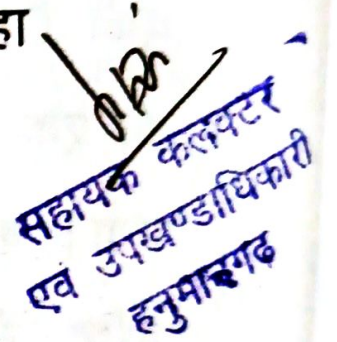 हा
सहायक कलक्टर
एवं उपखण्डाधिकारी
हनुमानगढ